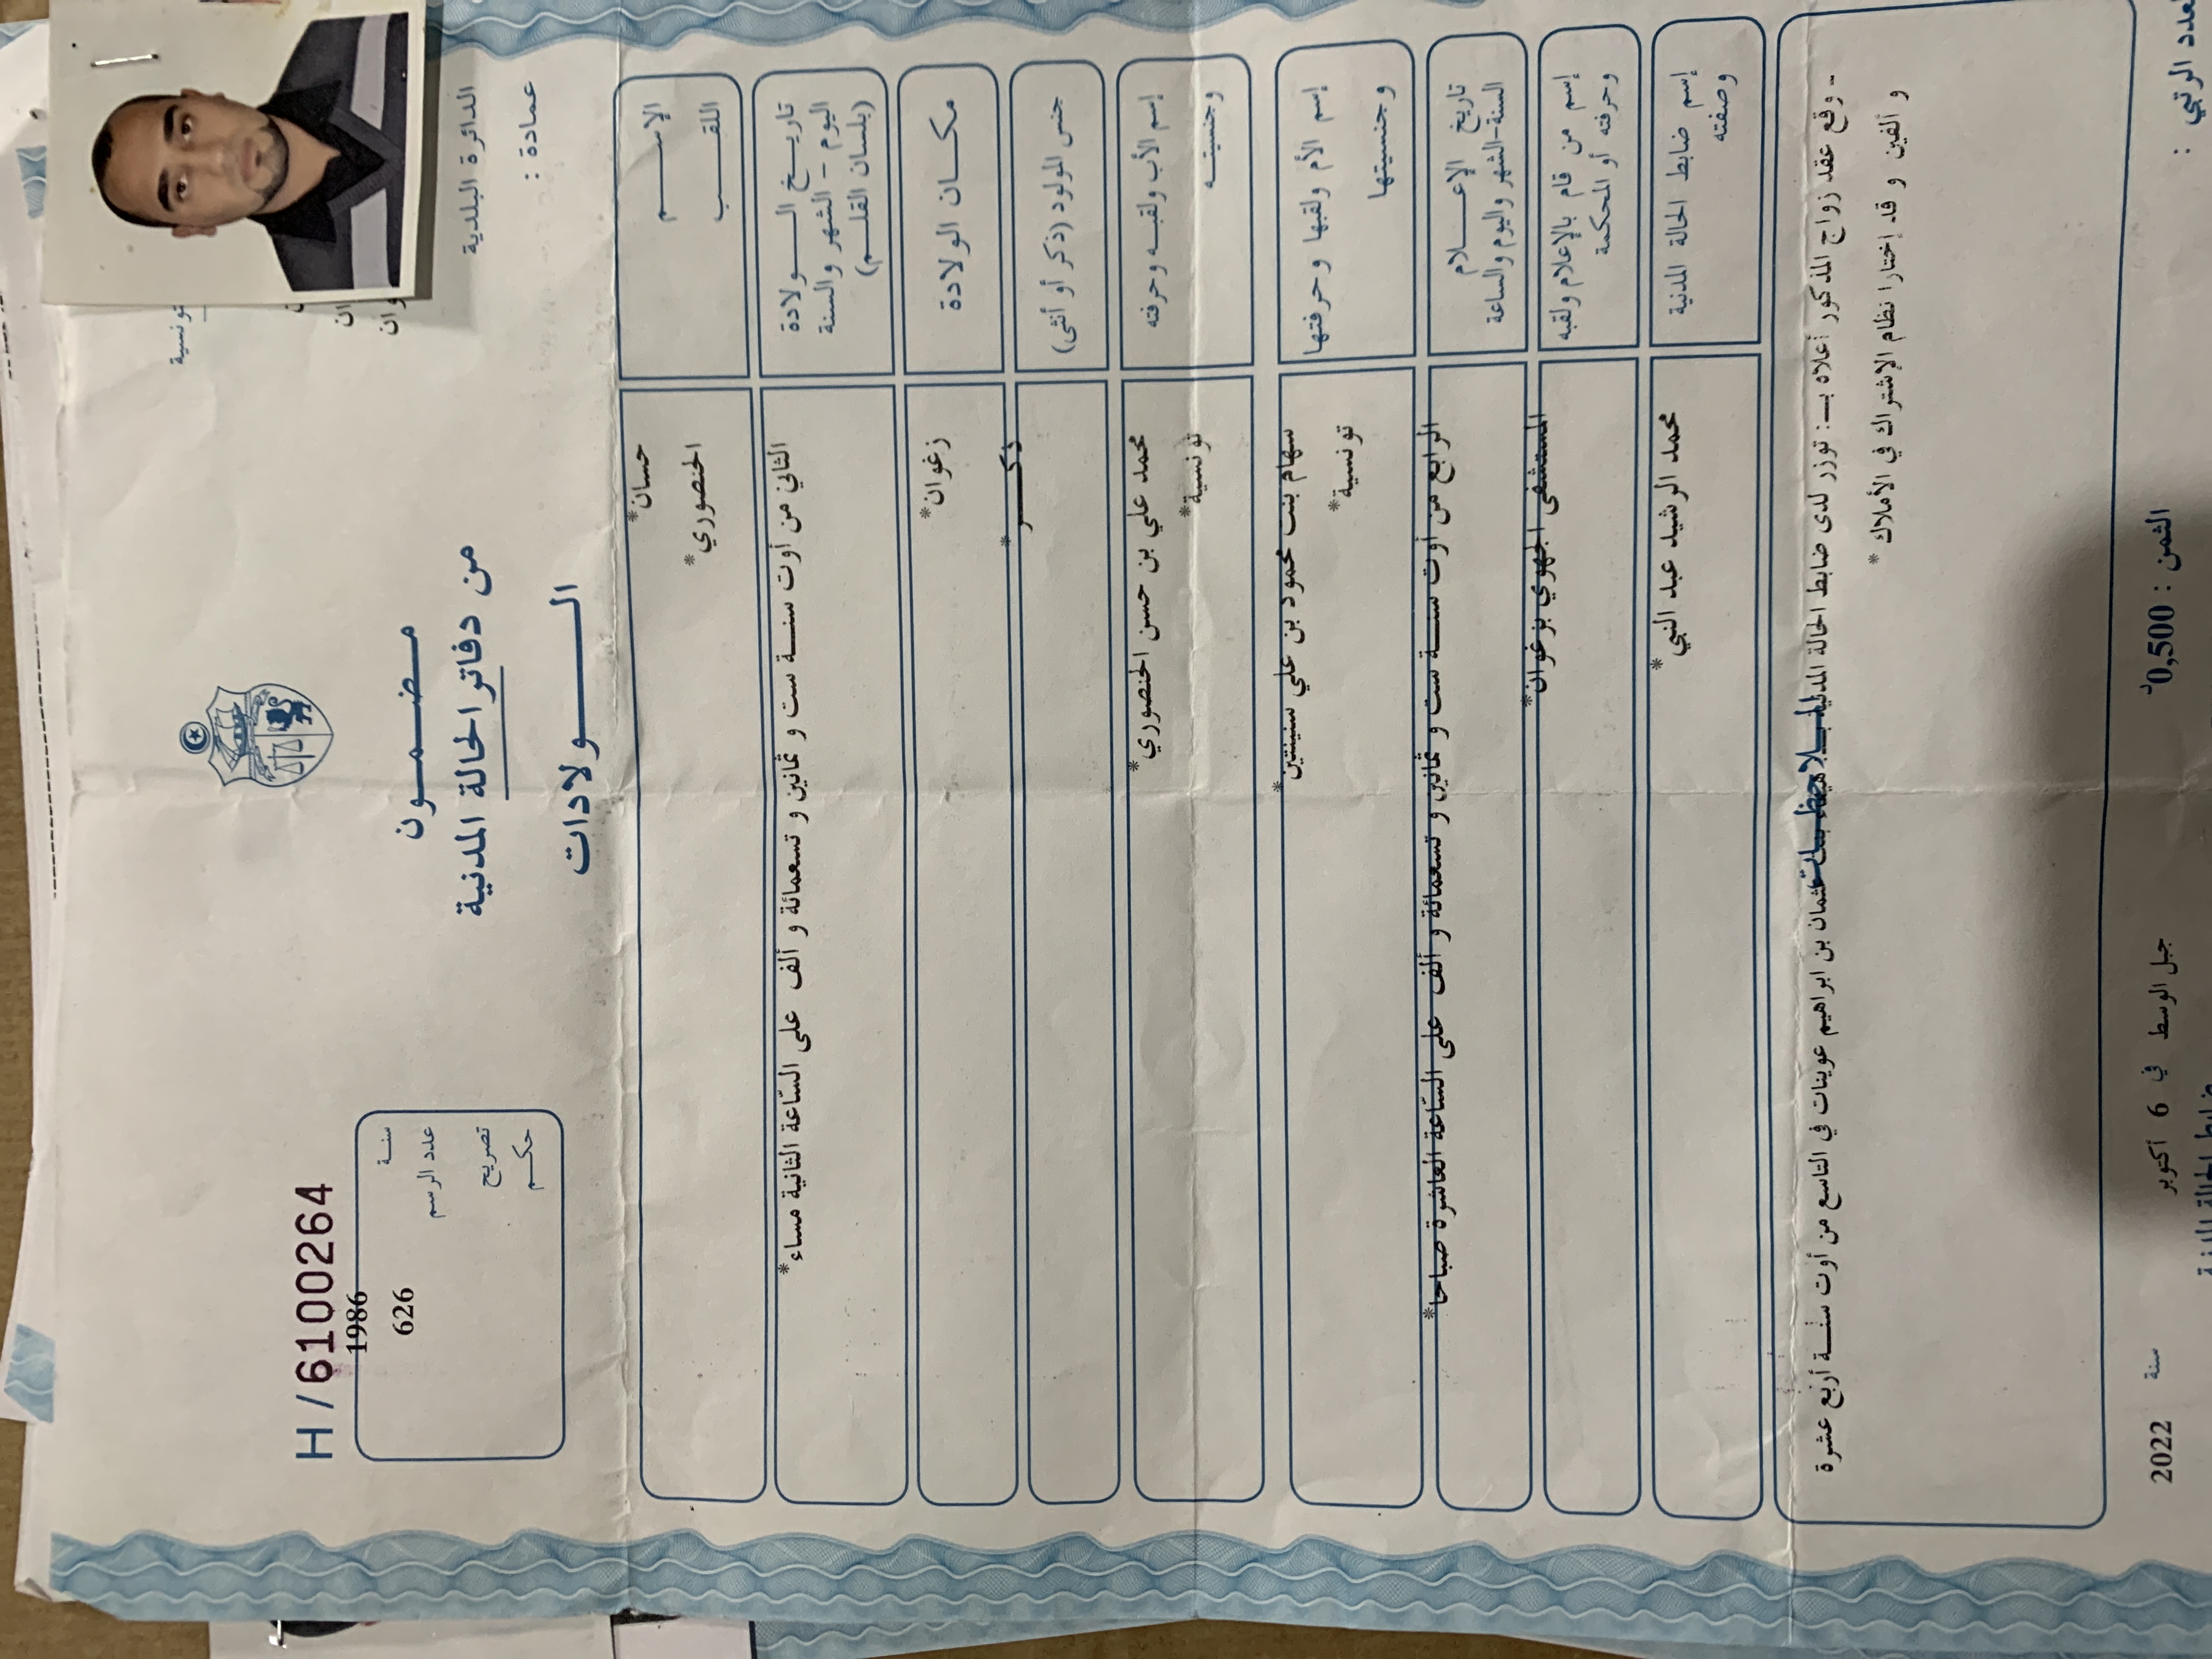 تونسية
الدائرة البلدية
عمادة :
مضمون
من دفاتر الحالة المدنية
الولادات
H / 6100264
سنة 1986
عدد الرسم 626
تصريح
حكم
الإسم حسان*
اللقب الخنصوري*
تاريخ الولادة الثاني من أوت سنة ست و ثمانين و تسعمائة و ألف على الساعة الثانية مساء*
اليوم - الشهر والسنة
(بلسان القلم)
مكان الولادة زغوان*
جنس المولود (ذكر أو أنثى) ذكر*
إسم الأب ولقبه وحرفته محمد علي بن حسن الخنصوري*
وجنسيته تونسية*
إسم الأم ولقبها وحرفتها سهام بنت محمود بن علي
وجنسيتها تونسية*
تاريخ الإعلام الرابع من أوت سنة ست و ثمانين و تسعمائة و ألف على الساعة العاشرة صباحا*
السنة-الشهر واليوم والساعة
إسم من قام بالإعلام ولقبه المستشفى الجهوي بزغوان*
وحرفته أو المحكمة
إسم ضابط الحالة المدنية محمد الرشيد عبد النبي*
وصفته
ملاحظات
- وقع عقد زواج المذكور أعلاه بـ: توزر لدى ضابط الحالة المدنية عثمان بن ابراهيم عوينات في التاسع من أوت سنة أربع عشرة
و ألفين و قد إختارا نظام الإشتراك في الأملاك *
العدد الرتبي :
الثمن : 0,500د
جبل الوسط في 6 أكتوبر سنة 2022
ضابط الحالة المدنية